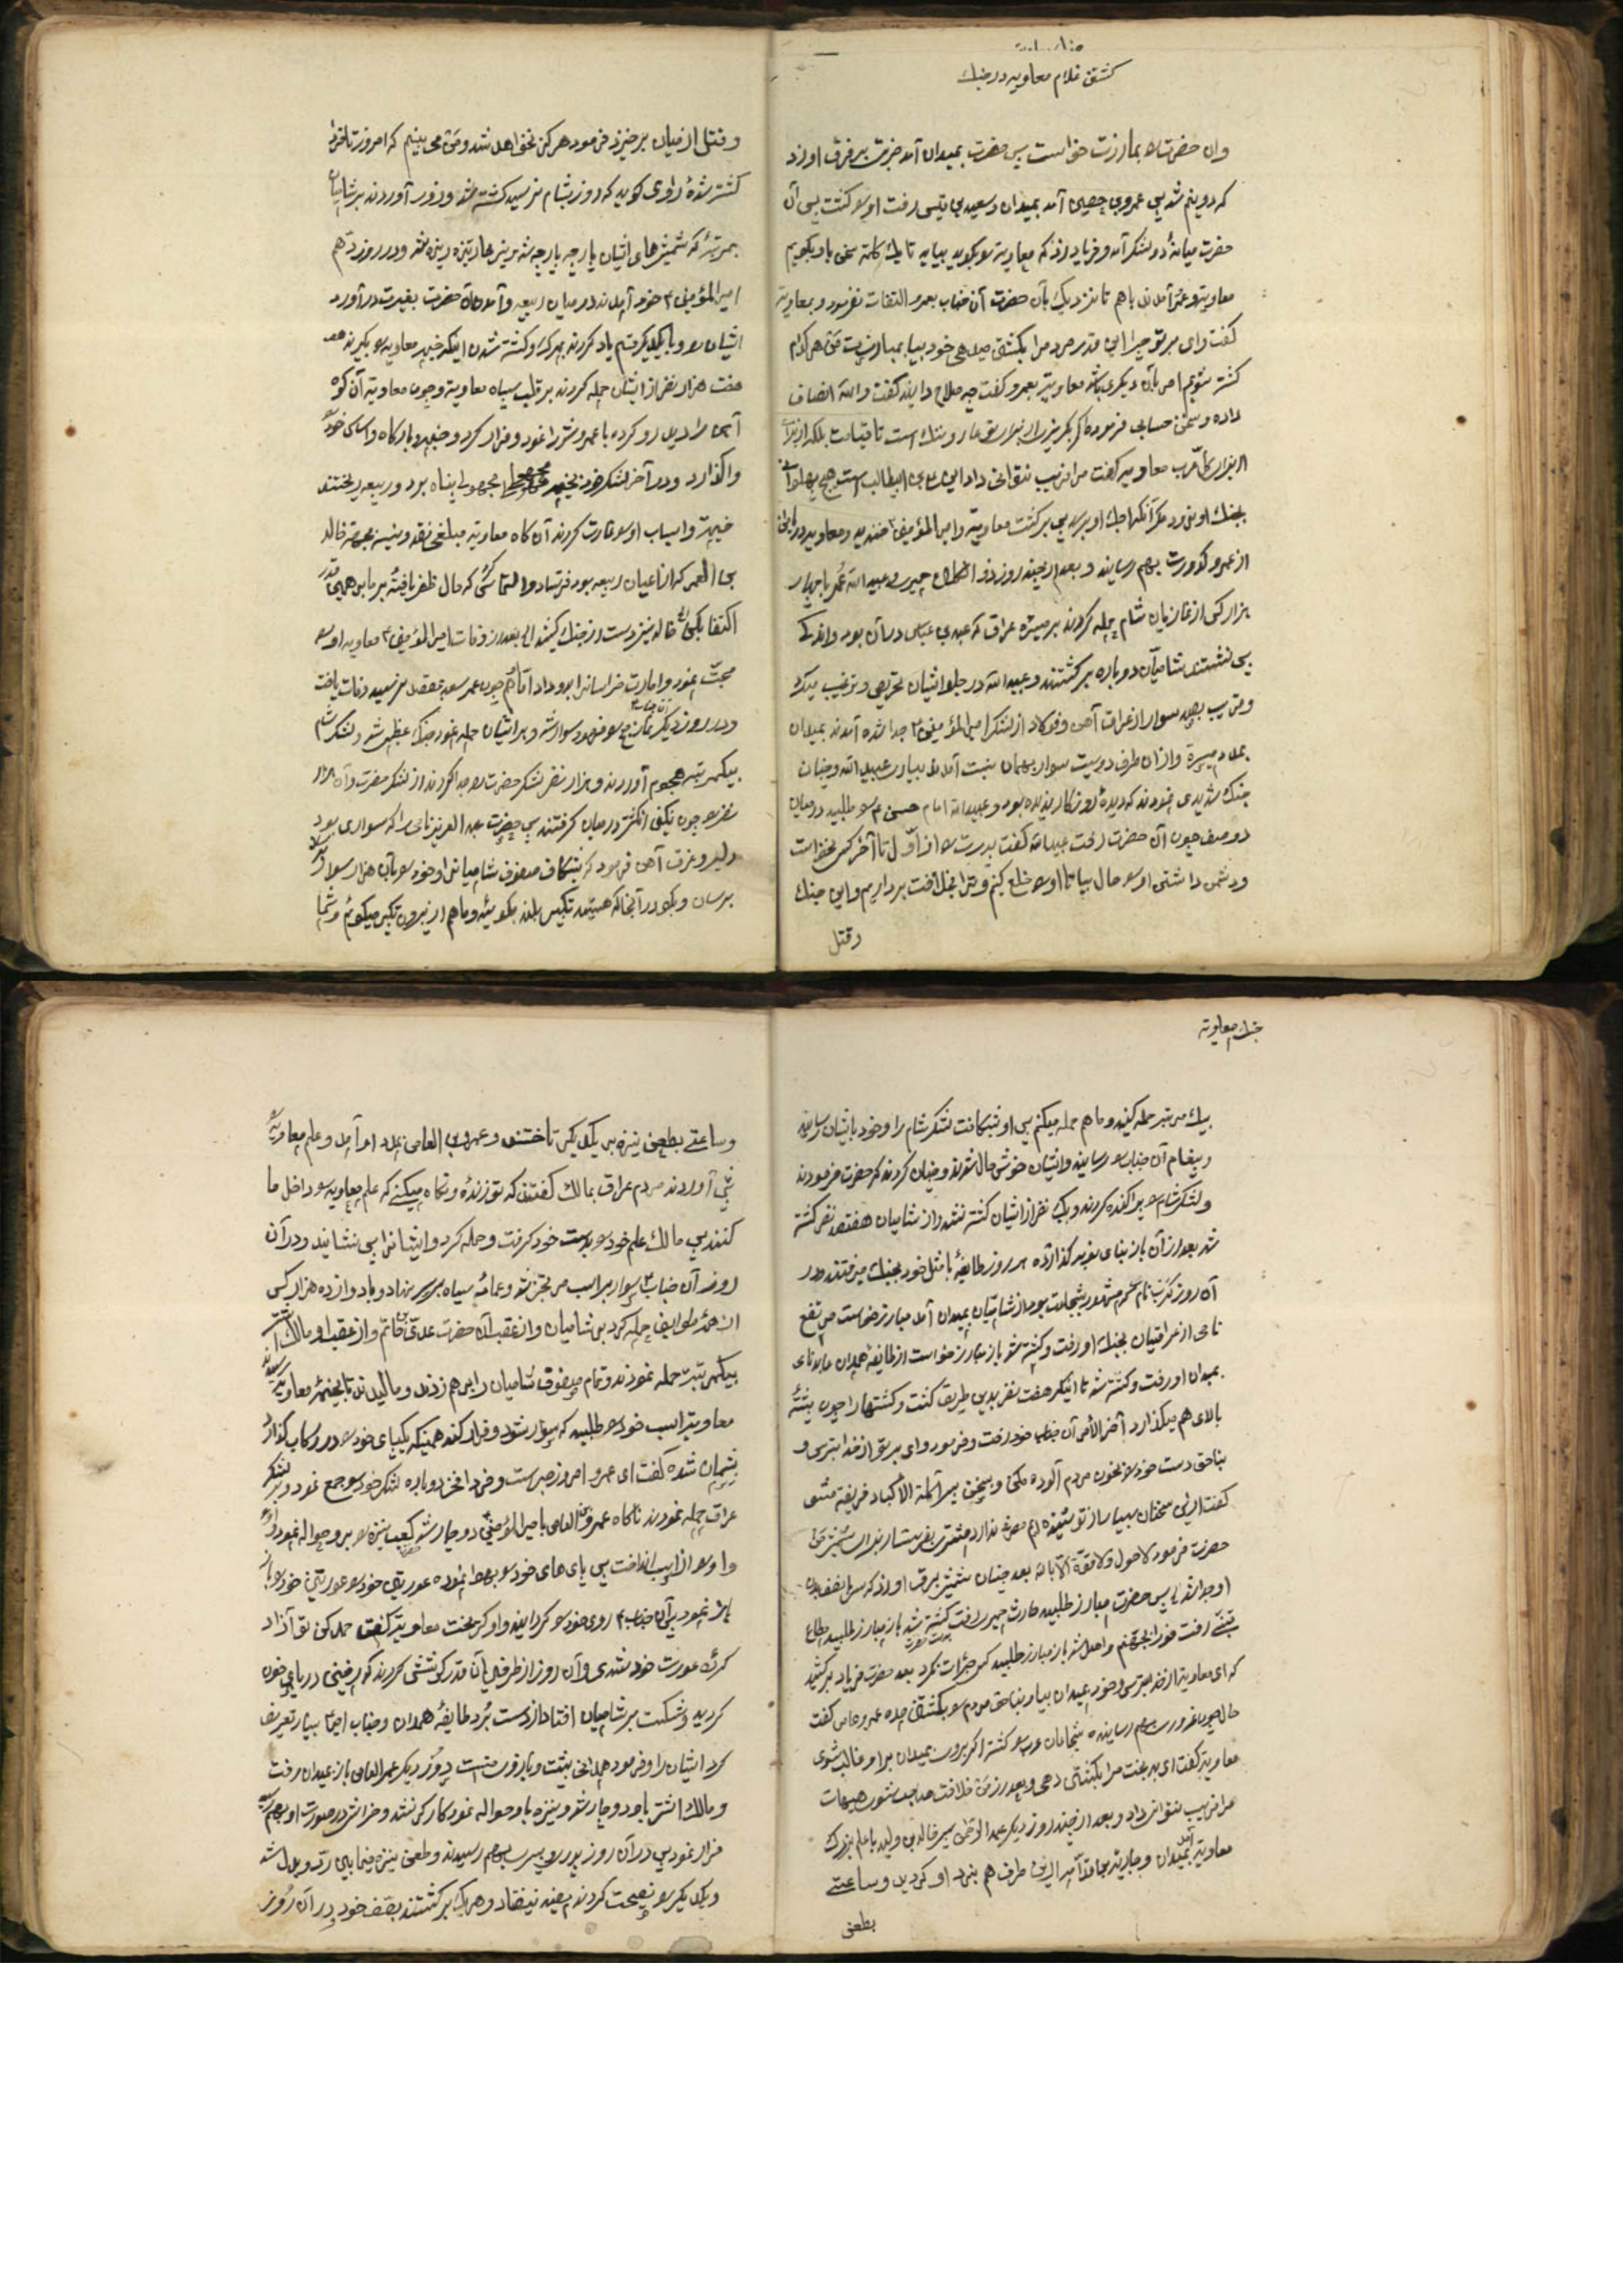 کشتن غلام معاویه در جنک
وان حضرت را بمبارزت خواست پس حضرت بمیدان آمد ضربت بر فرق او زد
که دو نیم شد پس عمرو بن حصین آمد بمیدان و سعید بن قیس رفت او را کشت پس آن
حضرت میانهٔ دو لشکر آمد و فریاد زد که معاویه را بکویید بیاید تا یک کلمه سخن باو بکویم
معاویه و عمرو آمدند باهم تا نزدیک بآن حضرت آن جناب بعمرو التفات نفرمود و بمعاویه
کفت وای بر تو چرا این قدر مردم را بکشتن میدهی خود بیا بمبارزت من هر کدام
کشته شویم امر بآن دیکری باشد معاویه بعمرو کفت چه صلاح دانی کفت والله انصاف
داده و سخن حسابی فرموده اکر بکریزی از برابرش عار و ننک است تا قیامت بلکه
معاویه کفت مرا فریب نتوانی داد این علی بن ابیطالب است هیچ پهلوانی
بجنک او نرود مکر آنکه اجل او برسد پس برکشت معاویه و امیرالمؤمنین ع خندید و معاویه را
از عمرو کدورت بهم رسانید و بعد از چند روز ذو الکلاع حمیری و عبیدالله عمر با چهار
هزار کس از غازیان شام حمله کردند بر میسره عراق که عبدالله بن عباس در آن بود و اندکی
پس نشستند شامیان دوباره برکشتند و عبیدالله در جلو ایشان تحریص و ترغیب میکرد
و قریب بصد سوار از غرقان آهن و فولاد از لشکر امیرالمؤمنین ع جدا شده آمدند بمیدان
بمدد میسره و از آن طرف دویست سوار بهمان هیئت آمدند بیاری عبیدالله و چنان
جنک شدیدی نمودند که دیدهٔ روزکار ندیده بود و عبیدالله امام حسن ع را طلبید در میان
دو صف چون آن حضرت رفت عبیدالله کفت پدرت را از اول تا آخر کس نمیخواست
و دشمن داشتی او را حال بیا تا او را خلع کنیم و ترا بخلافت برداریم و این جنک
و قتل
و قتل از میان برخیزد فرمود هرکز نخواهد شد و من می بینم که امروز تا فردا
کشته شدهٔ راوی کوید که روز بشام نرسید کشته شد و زور آوردند بر شامیان
بمرتبهٔ که شمشیرهای ایشان پارچه پارچه شد و نیزها ریزه ریزه شد و در روز دهم
امیرالمؤمنین ع خود آمدند در میان ربیعه و آمدن آن حضرت بغیرت در آورد
ایشان را و با یکدیکر قسم یاد کردند بمرک و کشته شدن اینکه خیمه معاویه را بکیرند
هفت هزار نفر از ایشان حمله کردند بر قلب سپاه معاویه و چون معاویه آن کوه
آهن را دید رو کرده با عمرو شرر اغود و فرار کرد و خیمه و بارکاه و اساس خود
واکذارد و در آخر لشکر خود بخیمه مجهولی پناه برد و ربیعه ریختند
خیمه و اسباب او را غارت کردند آن کاه معاویه مبلغی نقد و نسیه بجهة خالد
بن المعمر که از اعیان ربیعه بود فرستاد و التماس کرد که حال ظفر یافته بر ما بس همین قدر
اکتفا بکن خالد نیز دست از جنک کشید الی بعد از وفات امیرالمؤمنین ع معاویه او را
محبت نمود و امارت خراسان را باو داد اما هم چون عمر سعد بمقصد نرسیده وفات یافت
و در روز دیکر آن جناب ع سوار شد و بر ایشان حمله نمود جنک عظیمی شد و لشکر شام
بیکمرتبه هجوم آوردند و هزار نفر لشکر حضرت را جدا کردند از لشکر حضرت و آن هزار
نفر را چون نکین انکشتر در میان کرفتند پس حضرت عبدالعزیز نامی را که سواری بود
دلیر و غرق آهن فرمود که بشکاف صفوف شامیان را و خود را بآن هزار سوار
برسان و بکو در آنجا که هستید تکبیر بلند بکوئید و ما هم از بیرون تکبیر میکوئیم و شما
جنک معاویه
بیک مرتبه حمله کنید و ما هم حمله میکنیم پس او بشکافت لشکر شام را و خود بایشان رسانید
و پیغام آن جناب را رسانید و ایشان خوشحال شدند و چنان کردند که حضرت فرمودند
و لشکر شام را پراکنده کردند و یک نفر از ایشان کشته نشد و از شامیان هفتصد نفر کشته
شد بعد از آن باز بنای نوبه کذارده هر روز طائفهٔ با مثل خود بجنک میرفتند و در
آن روز کریب نام که مشهور بشجاعت بود از شامیان بمیدان آمد مبارز خواست مرتفع
نامی از عراقیان بجنک او رفت و کشته شد باز مبارز خواست از طائفهٔ همدان عابد نامی
بمیدان او رفت و کشته شد تا اینکه هفت نفر بدین طریق کشت و کشتها را چون پشته
بالای هم میکذارد آخر الامر آن جناب خود رفت و فرمود وای بر تو از خدا بترس و
بناحق دست خود را بخون مردم آلوده مکن و بسخن پسر آکلة الاکباد فریفته مشو
کفت از این سخنان بسیار از تو شنیده ام مصرف ندارد
حضرت فرمود لاحول ولا قوة الا بالله بعد چنان شمشیر بفرق او زد که
او جدا شد پس حضرت مبارز طلبید حارث حمیری رفت کشته شد باز مبارز طلبید مطاع
رفت فورا بجهنم واصل شد باز مبارز طلبید کس جرأت نکرد بعد حضرت فریاد برکشید
که ای معاویه از خدا بترس و خود بمیدان بیا و بناحق مردم را بکشتن مده عمرو عاص کفت
حال چون غرورت بهم رسانیده شجاعان عرب را کشته اکر بروی بمیدان بر او غالب شوی
معاویه کفت ای بدبخت مرا بکشتن دهی و بعد از من خلافت صاحب شوی هیهات
مرا فریب نتوانی داد و بعد از چند روز دیکر عبدالرحمن پسر خالد بن ولید با علم بزرک
معاویه آمد بمیدان و جاریه بن قدامه از این طرف هم بنزد او کردید و ساعتی
بطعن
و ساعتی بطعن نیزه بر یکدیکر تاختند و عمرو بن العاص بمدد او آمد و علم معاویه را
پیش آوردند مردم عراق بمالک کفتند که تو زندهٔ و نکاه میکنی که علم معاویه را داخل ما
کنند پس مالک علم خود را بدست خود کرفت و حمله کرد و ایشان را پس نشاند و در آن
روز آن جناب ع سوار بر اسب مرتجز شد و عمامهٔ سیاه بر سر نهاد و با دوازده هزار کس
از همهٔ طوایف حمله کرد بر شامیان و از عقب آن حضرت عدی بن حاتم و از عقب او مالک اشتر
بیکمرتبه حمله نمودند و تمام صفوف شامیان را برهم زدند و مالیدند تا بخیمهٔ معاویه رسیدند
معاویه اسب خود را طلبید که سوار شود و فرار کند همینکه یک پای خود را در رکاب کذارد
پشیمان شده کفت ای عمرو امروز صبر است و فردا فخر دوباره لشکر خود را جمع نمود و بر لشکر
عراق حمله نمودند ناکاه عمرو بن العاص با امیرالمؤمنین ع دوچار شد کعب نیزه را بر او حواله نمود
و او را از اسب انداخت پس پای های خود را بهوا نموده عورتین خود را
نمود پس آن جناب ع روی خود را کردانید و او کریخت معاویه کفت حمد کن تو آزاد
کردهٔ عورت خود شدی و آن روز از طرفین آن قدر کوشش کردند که زمین دریای خون
کردید و شکست بر شامیان افتاد از دست برد طائفهٔ همدان و جناب امیر ع بسیار تعریف
کرد ایشان را و فرمود همدانی بیتت و بازوی منست و روز دیکر عمرو العاص باز بمیدان رفت
و مالک اشتر باو دوچار شد و نیزه باو حواله نمود کارکر نشد و خراش در صورت او بهم رسید
فرار نمود پس در آن روز پدر و پسر بهم رسیدند و طعن نیزه فیما بین رد و بدل شد
و یکدیکر را نصیحت کردند مفید نیفتاد و هر یک برکشتند بصف خود در آن روز